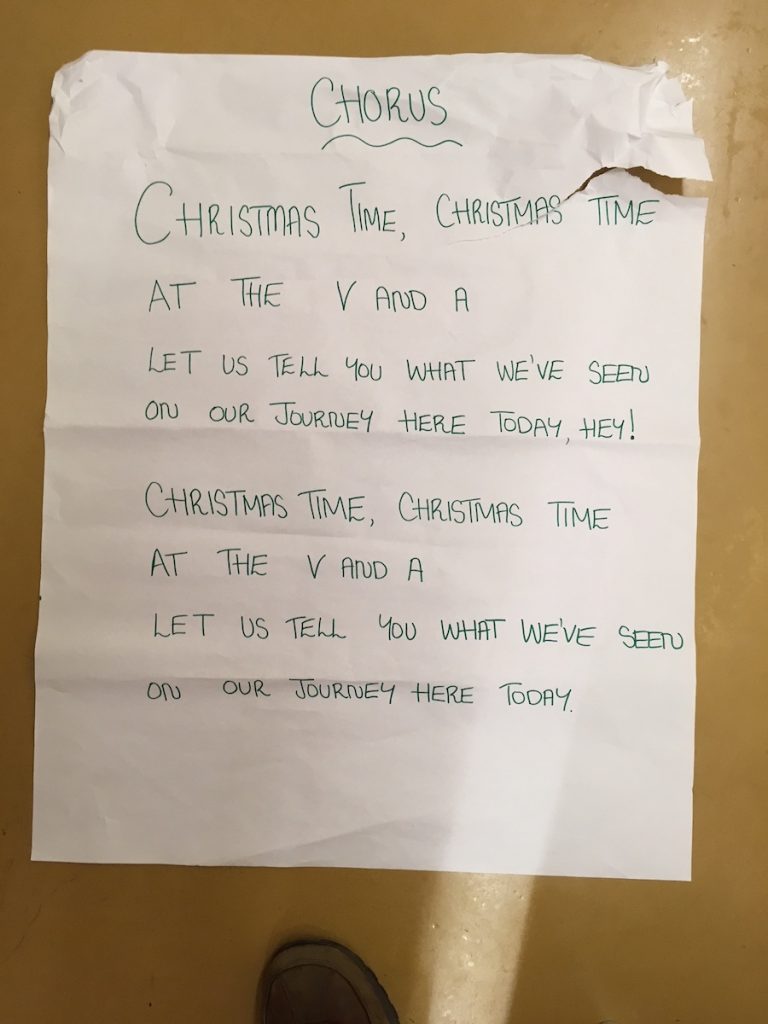 CHORUS
CHRISTMAS TIME, CHRISTMAS TIME
AT THE V AND A
LET US TELL YOU WHAT WE'VE SEEN
ON OUR JOURNEY HERE TODAY, HEY!
CHRISTMAS TIME, CHRISTMAS TIME
AT THE V AND A
LET US TELL YOU WHAT WE'VE SEEN
ON OUR JOURNEY HERE TODAY.